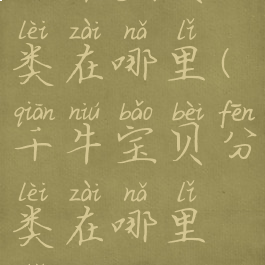 lèi zài nǎ lǐ
类在哪里(
qiān niú bǎo bèi fēn
千牛宝贝分
lèi zài nǎ lǐ
类在哪里